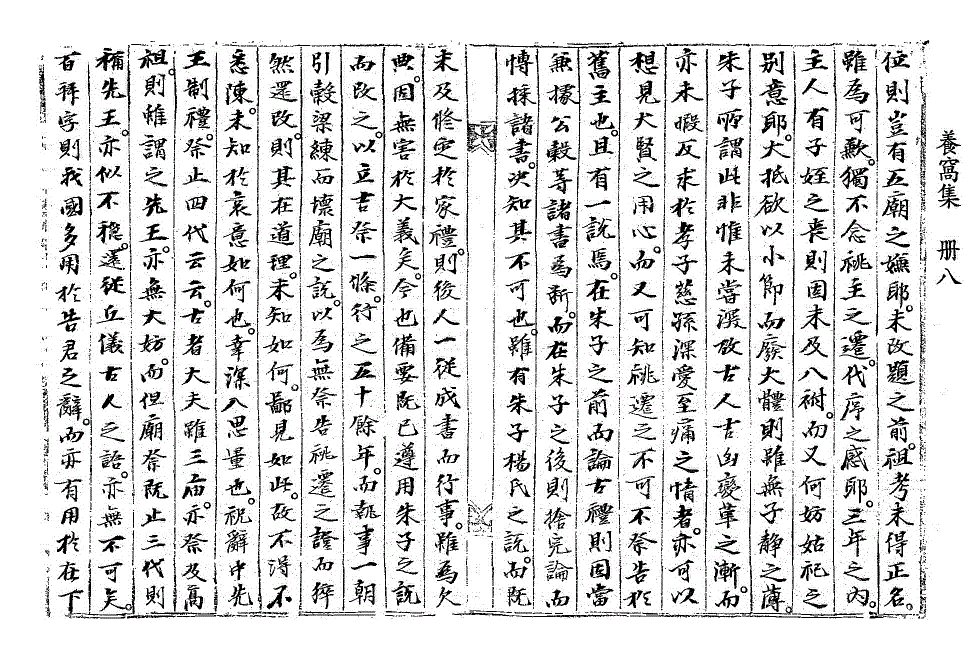 養窩集　冊八
位則豈有五廟之嫌耶。未改題之前。祖考未得正名。
雖爲可歉。獨不念祧主之遷。代序之感耶。三年之內。
主人有子姪之喪則固未及入祔。而又何妨姑祀之
別意耶。大抵欲以小節而廢大體則雖無子靜之薄。
朱子所謂此非惟未嘗深攷古人吉凶變革之漸。而
亦未暇反求於孝子慈孫深愛至痛之情者。亦可以
想見大賢之用心。而又可知祧遷之不可不祭告於
舊主也。且有一說焉。在朱子之前而論古禮則固當
兼據公穀等諸書爲斷。而在朱子之後則捨完論而
博採諸書。决知其不可也。雖有朱子楊氏之說。而旣
未及修定於家禮。則後人一從成書而行事。雖爲欠
典。固無害於大義矣。今也備要旣已遵用朱子之說
而改之。以立吉祭一條。行之五十餘年。而執事一朝
引穀梁練而壞廟之說。以爲無祭告祧遷之證而猝
然還改。則其在道理。未知如何。鄙見如此。故不得不
悉陳。未知於哀意如何也。幸深入思量也。祝辭中先
王制禮。祭止四代云云。古者大夫雖三廟。亦祭及高
祖。則雖謂之先王。亦無大妨。而但廟祭旣止三代則
補先王。亦似不穩。遂從丘儀古人之語。亦無不可矣。
百拜字則我國多用於告君之辭。而亦有用於在下